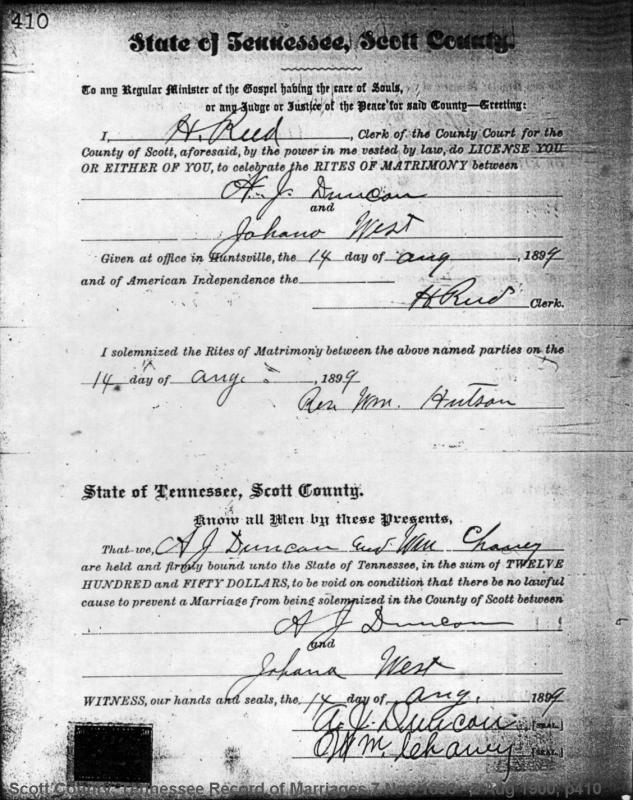 410
State of Tennessee, Scott County.
To any Regular Minister of the Gospel having the care of Souls,
or any Judge or Justice of the Peace for said County—Greeting:
I, H. Reed, Clerk of the County Court for the
County of Scott, aforesaid, by the power in me vested by law, do LICENSE YOU
OR EITHER OF YOU, to celebrate the RITES OF MATRIMONY between
A. J. Duncan
and
Johano West
Given at office in Huntsville, the 14 day of aug, 1899
and of American Independence the
H Reed Clerk.
I solemnized the Rites of Matrimony between the above named parties on the
14 day of aug., 1899
Rev Wm. Hutson
State of Tennessee, Scott County.
Know all Men by these Presents,
That we, A J Duncan and Wm Chaney
are held and firmly bound unto the State of Tennessee, in the sum of TWELVE
HUNDRED and FIFTY DOLLARS, to be void on condition that there be no lawful
cause to prevent a Marriage from being solemnized in the County of Scott between
A J Duncan
and
Johana West
WITNESS, our hands and seals, the 14 day of aug. 1899
A. J. Duncan [SEAL.]
Wm. Chaney [SEAL.]
Scott County, Tennessee Record of Marriages 7 Nov 1895 - 2 Aug 1900, p410